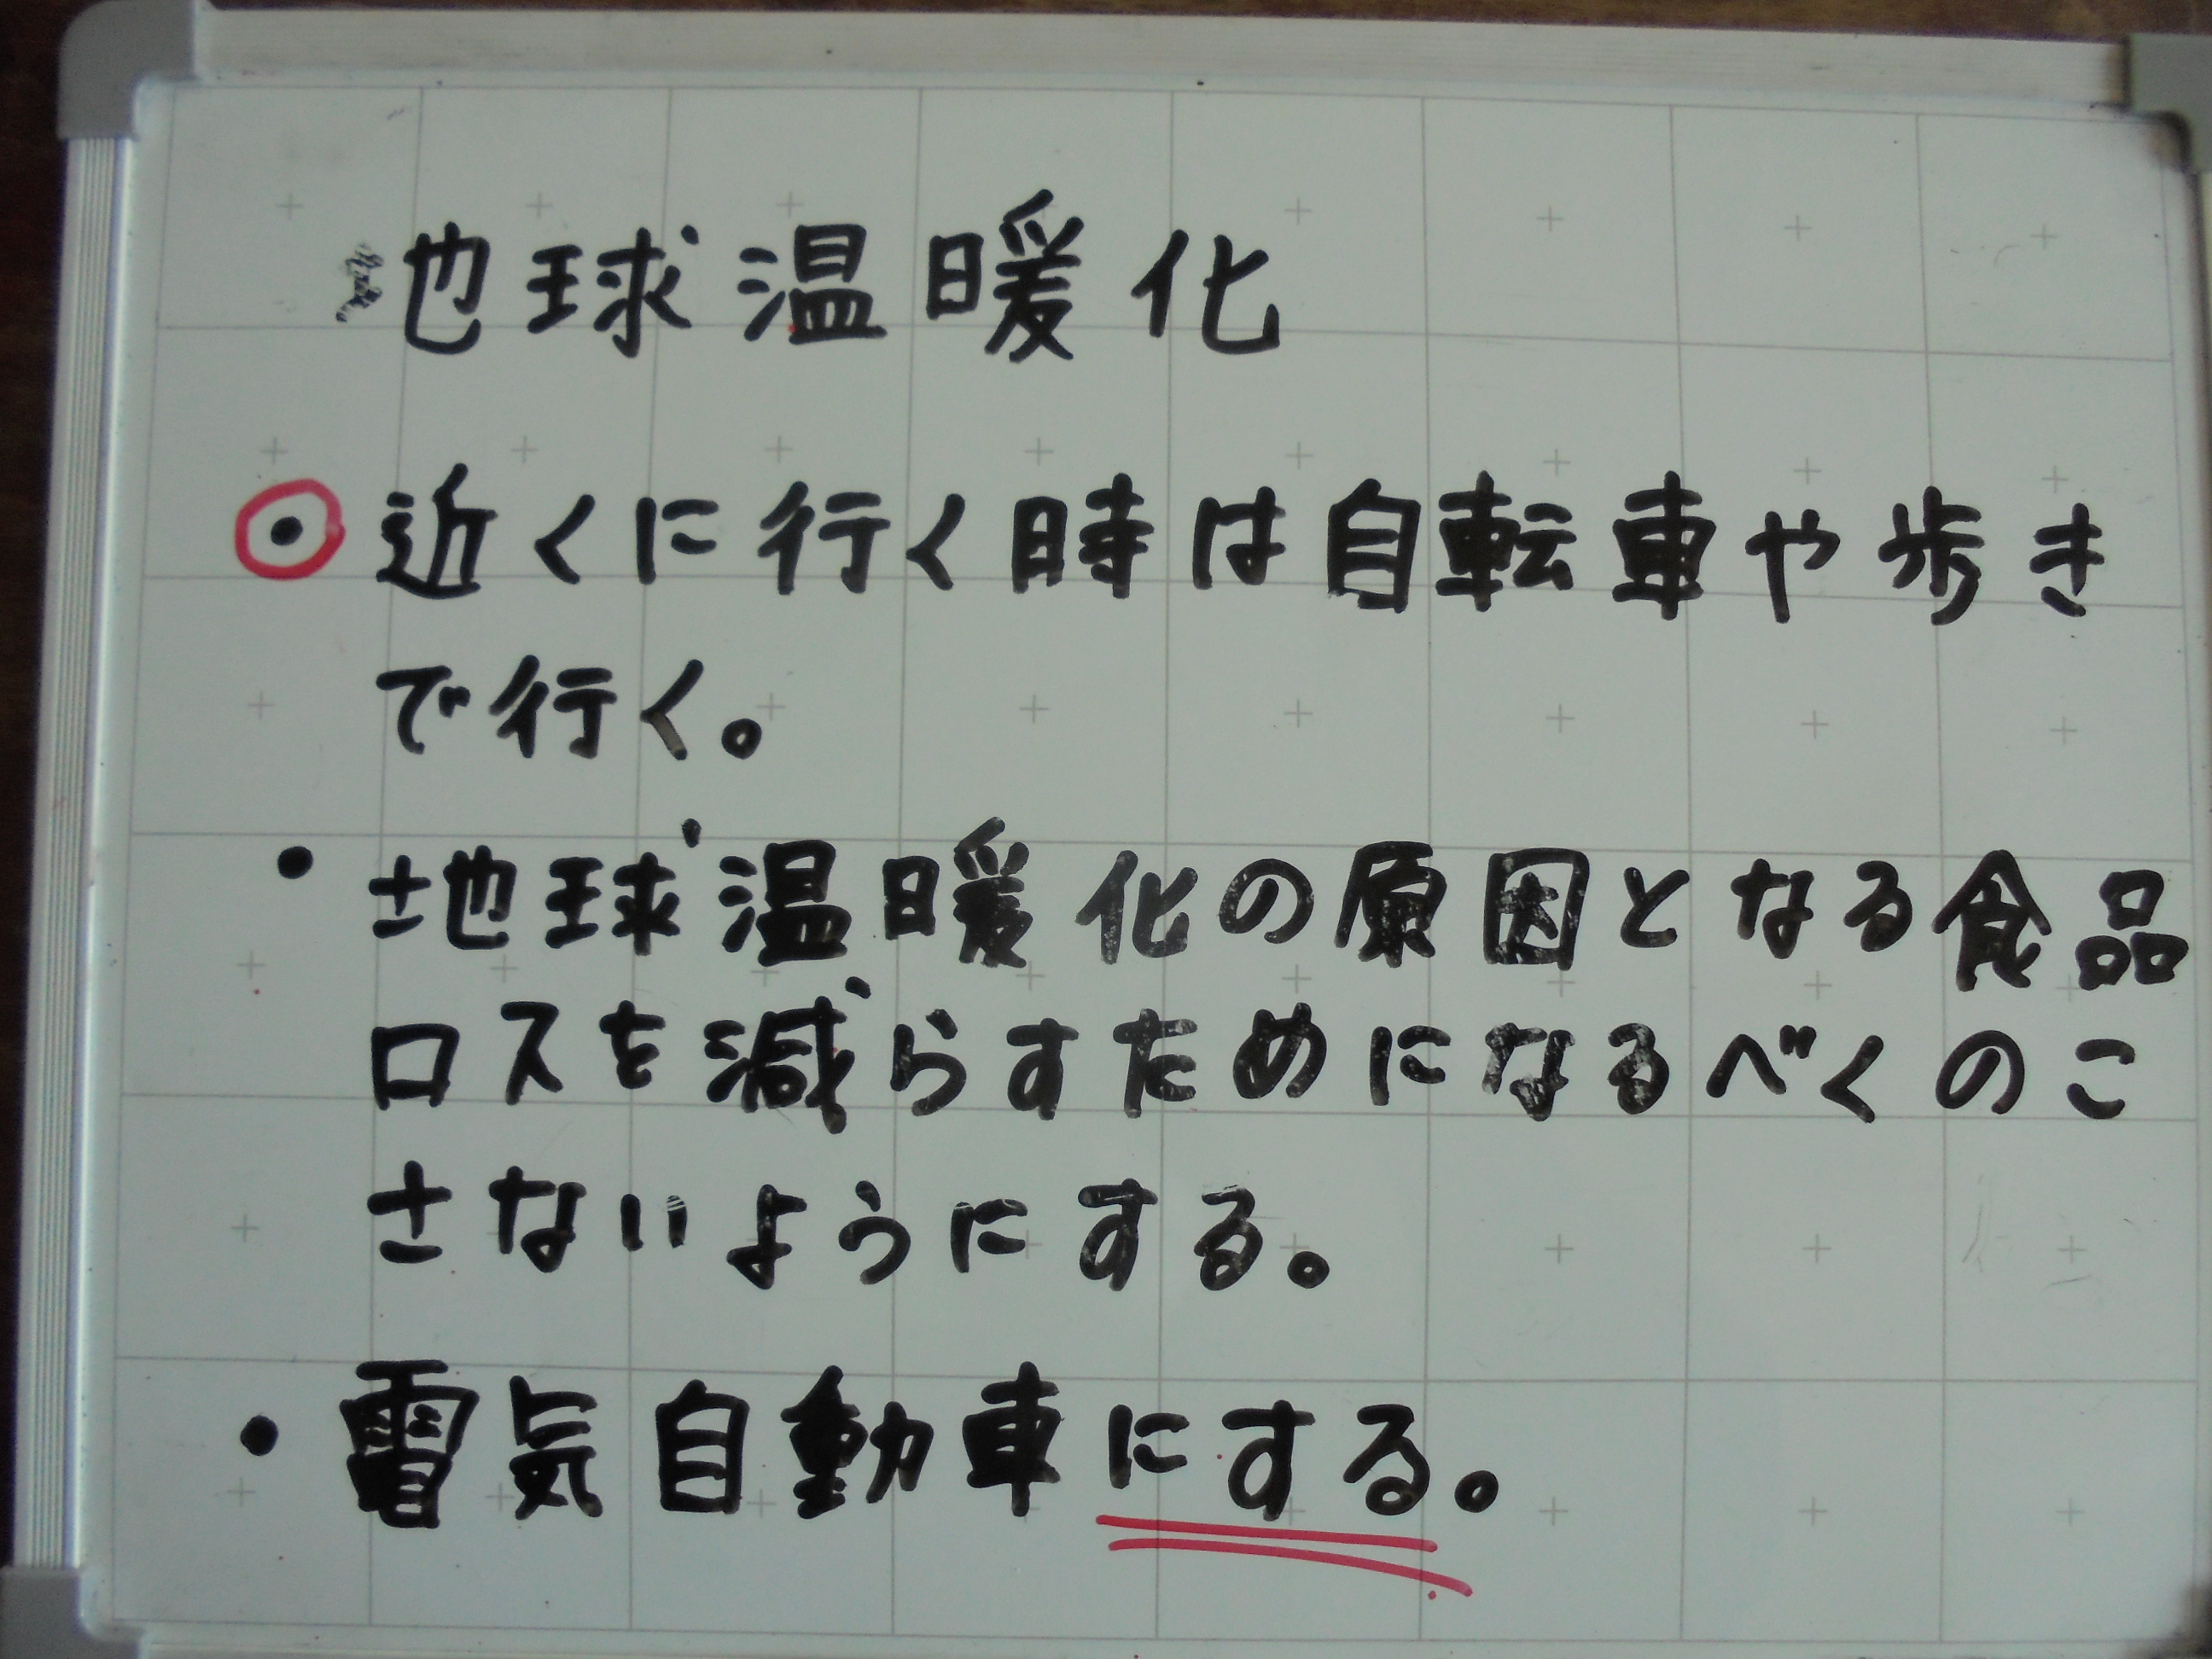 地球温暖化
・近くに行く時は自転車や歩き
で行く。
・地球温暖化の原因となる食品
ロスを減らすためになるべくのこ
さないようにする。
・電気自動車にする。